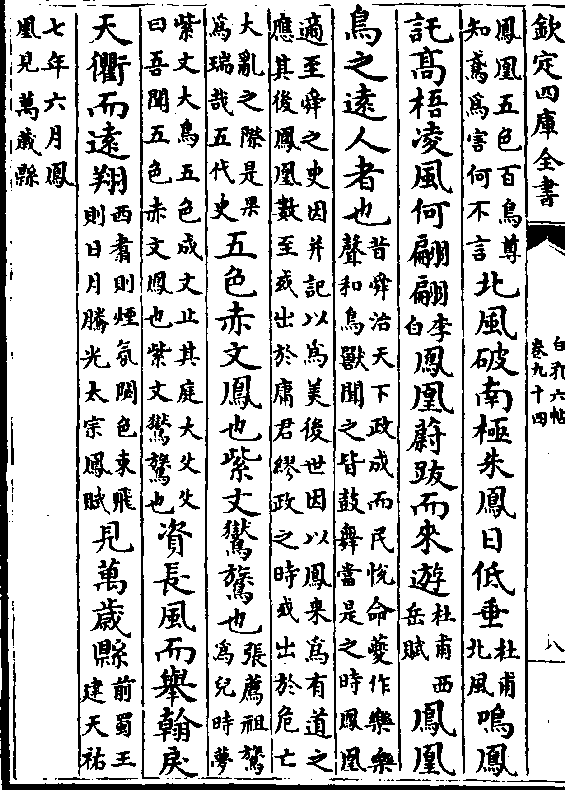 欽定四庫全書
白孔六帖
卷九十四
八
鳳凰五色百鳥尊
知鳶為害何不言
北風破南極朱鳳日低垂
杜甫
北風
鳴鳳
託高梧凌風何翩翩
李
白
鳳凰蔚跂而來遊
杜甫西
岳賦
鳳凰
鳥之遠人者也
昔舜治天下政成而民悅命夔作樂樂
聲和鳥獸聞之皆鼓舞當是之時鳳凰
適至舜之史因并記以為美後世因以鳳來為有道之
應其後鳳凰數至或出於庸君繆政之時或出於危亡
大亂之際是果
為瑞哉五代史
五色赤文鳳也紫文鸑鷟也
張薦祖鷟
為兒時夢
紫文大鳥五色成文止其庭大父父
曰吾聞五色赤文鳳也紫文鸑鷟也
資長風而舉翰戾
天衢而遠翔
西翥則煙氛閟色東飛
則日月騰光太宗鳳賦
見萬歲縣
前蜀王
建天祐
七年六月鳳
凰見萬歲縣